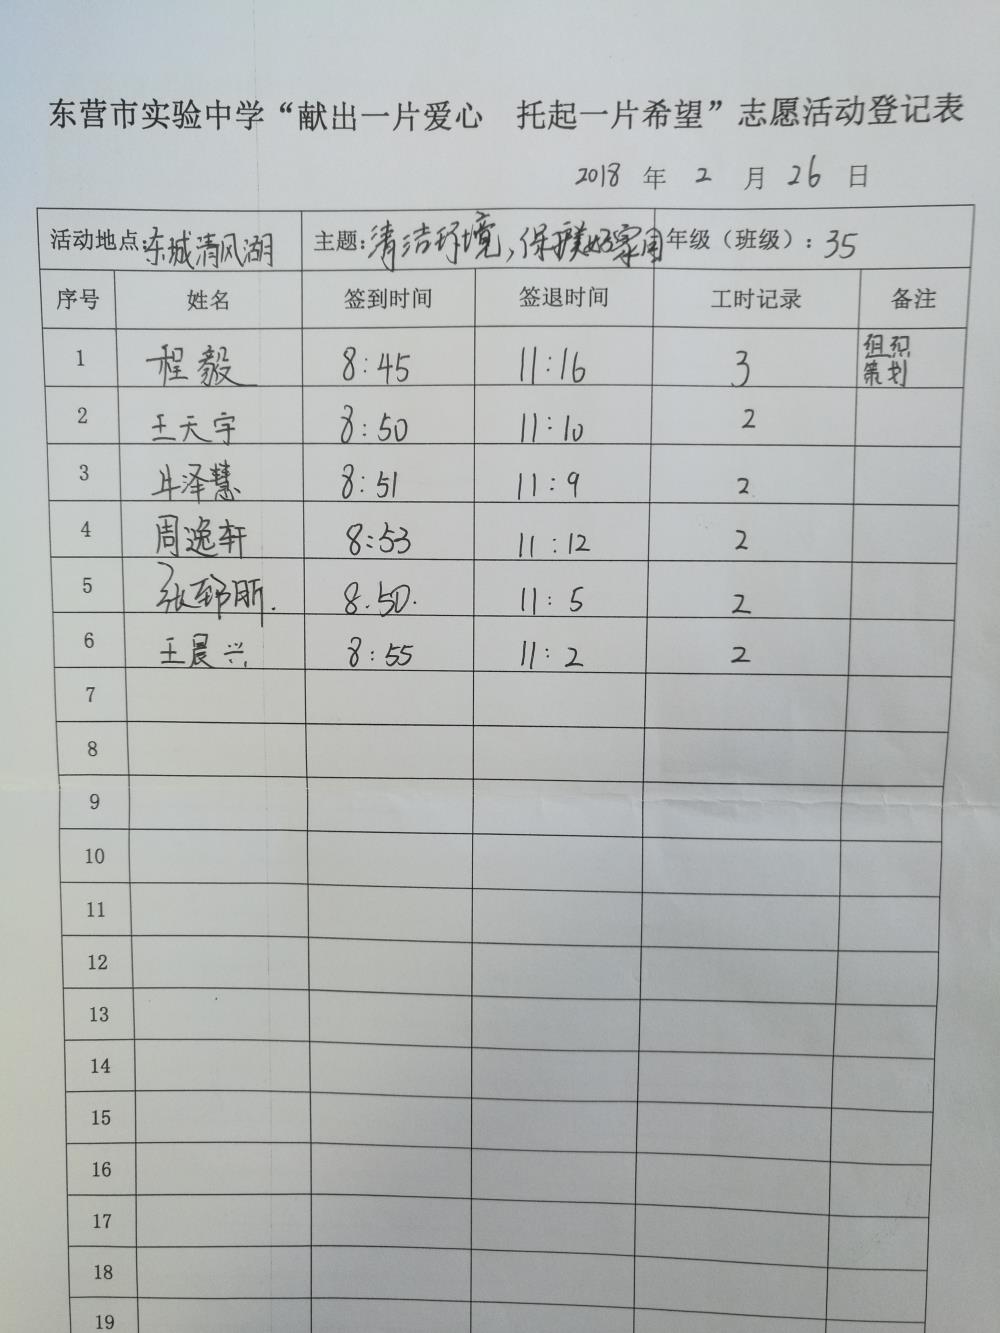 东营市实验中学“献出一片爱心 托起一片希望”志愿活动登记表
2018 年 2 月 26 日
活动地点:东城清风湖 主题:清洁环境,保护好家园 年级(班级):35
序号 姓名 签到时间 签退时间 工时记录 备注
1 程毅 8:45 11:16 3 组织
策划
2 王天宇 8:50 11:10 2
3 泽慧 8:51 11:9 2
4 周逸轩 8:53 11:12 2
5 张 8.50. 11:5 2
6 王晨兴 8:55 11:2 2
7
8
9
10
11
12
13
14
15
16
17
18
19